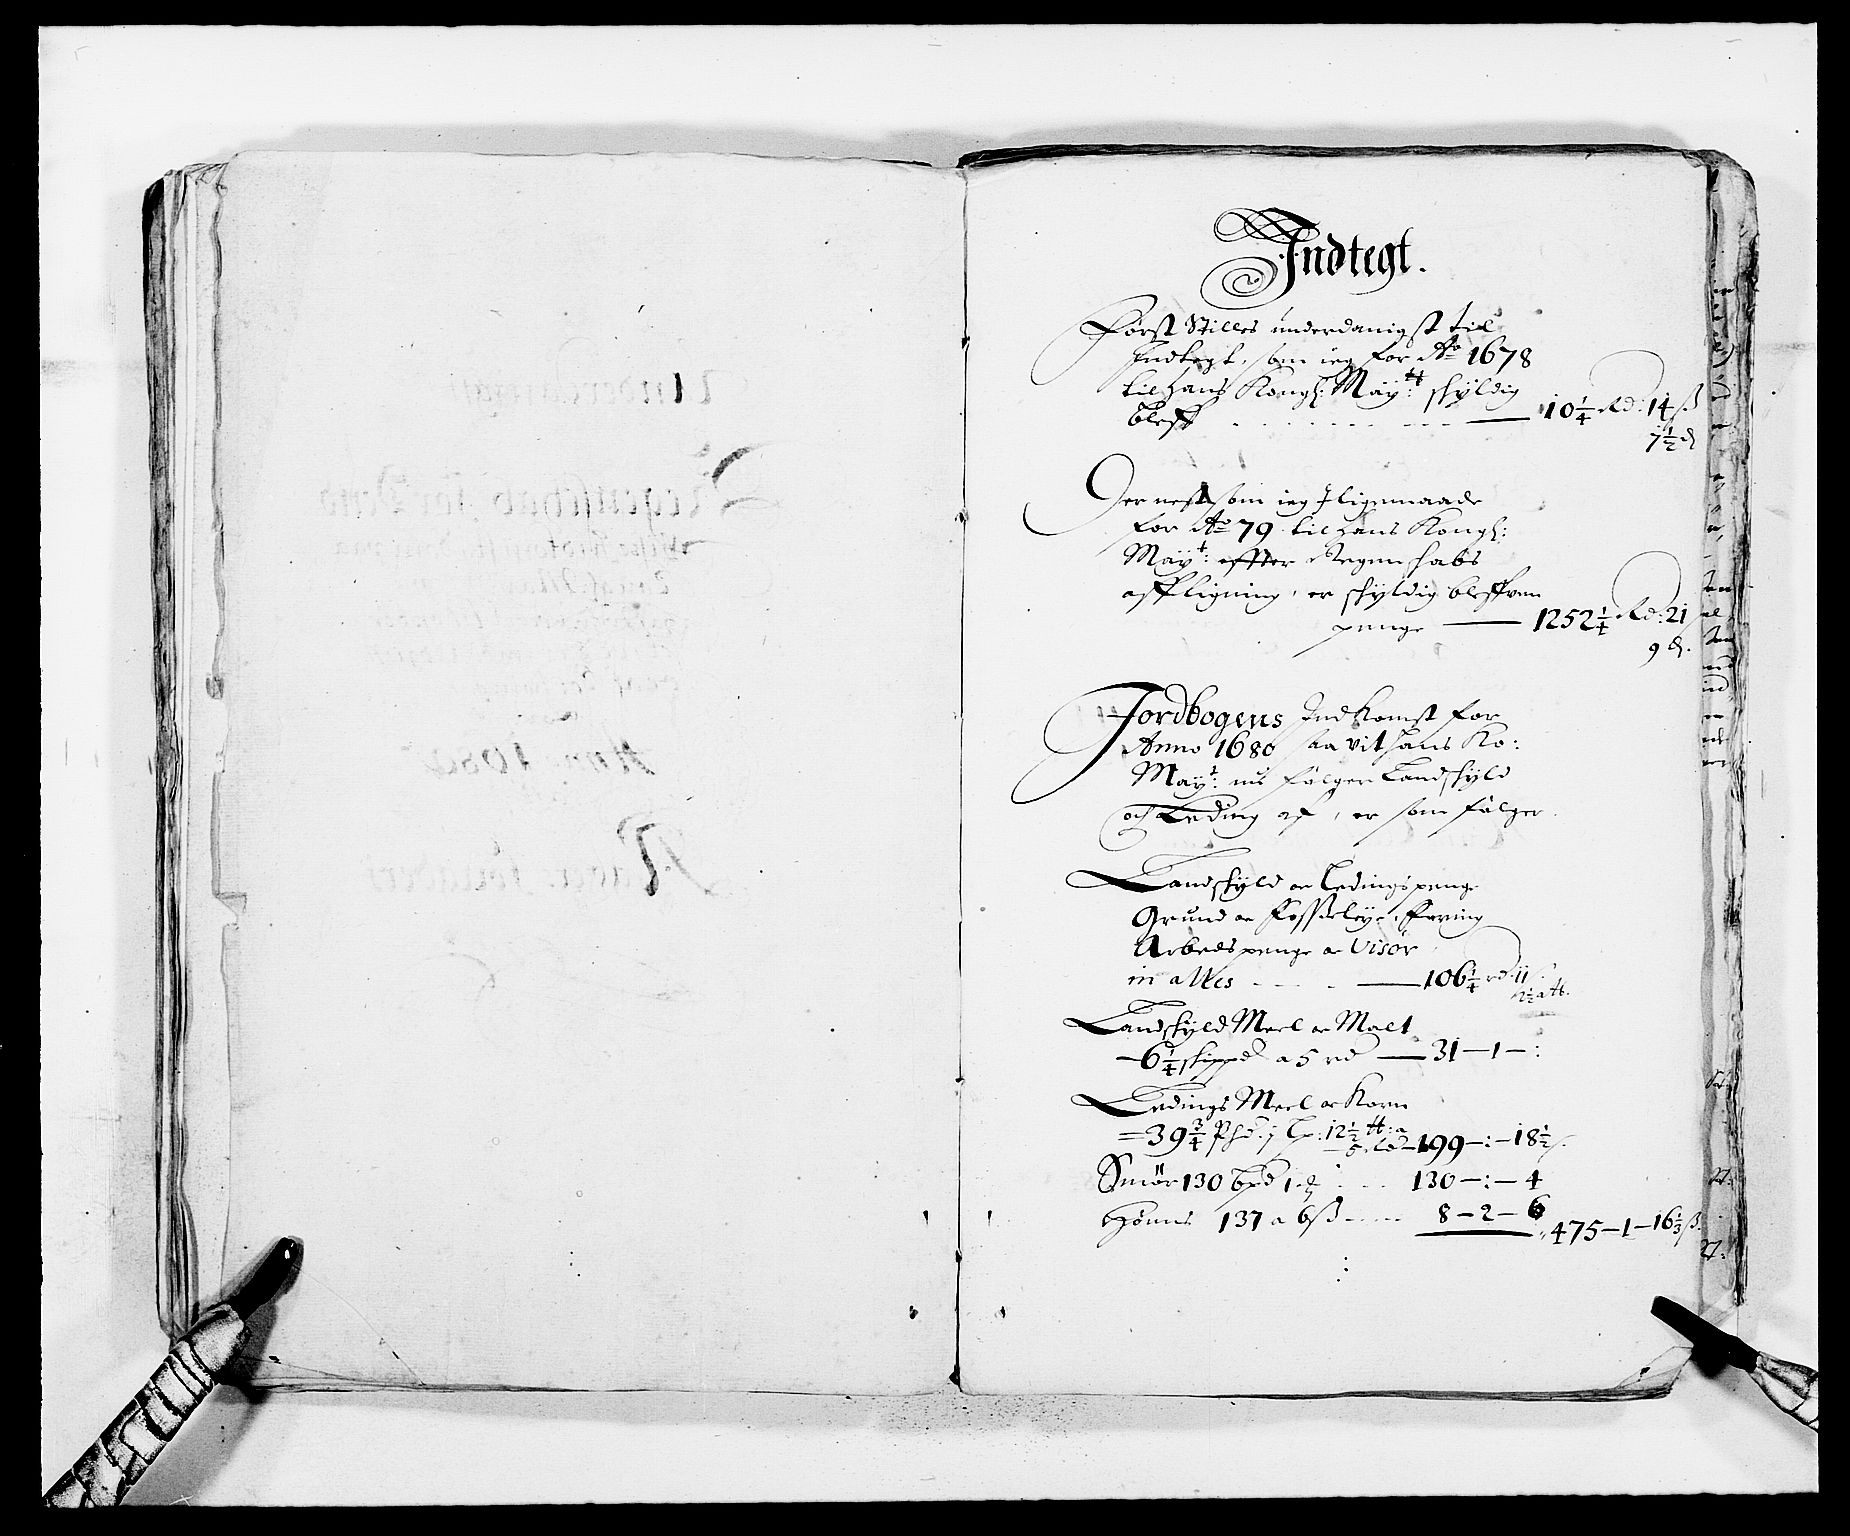 Indtegt.
Først Stilles underdanigst til
Indtegt, som ieg for Ao 1678
til hans Kongl: Maytt: skyldig
bleff — 10 1/4 Rd: 14 ß
7 1/2 d
Der nest som ieg J ligemaade
for Ao 79 til hans Kongl:
Mayt: effter Regenskabs
affligning, er skyldig bleffven
penge — 1252 1/4 Rd: 21
9 d.
Jordbogens Indkomst for
Anno 1680 saa vit hans Ko:
Mayt: nu følger Landskyld
och Leding af, er som følger.
Landskyld oc Ledings penge
Grund oc Fosseleye,
Arbeds penge oc Visör
in alles — 106 1/4 rd. 11
Landskyld Meel oc Malt
6 1/4 skippd a 5 rd — 31 — 1 — :
Ledings Meel oc Korn
39 3/4 12 1/2 tt: a
5 Rd — 199 — : — 18 1/2 ß
Smör 130 bpd 130 — : — 4
Hönns 137 a 6 ß 8 — 2 — 6
475 — 1 — 16 1/3 ß.